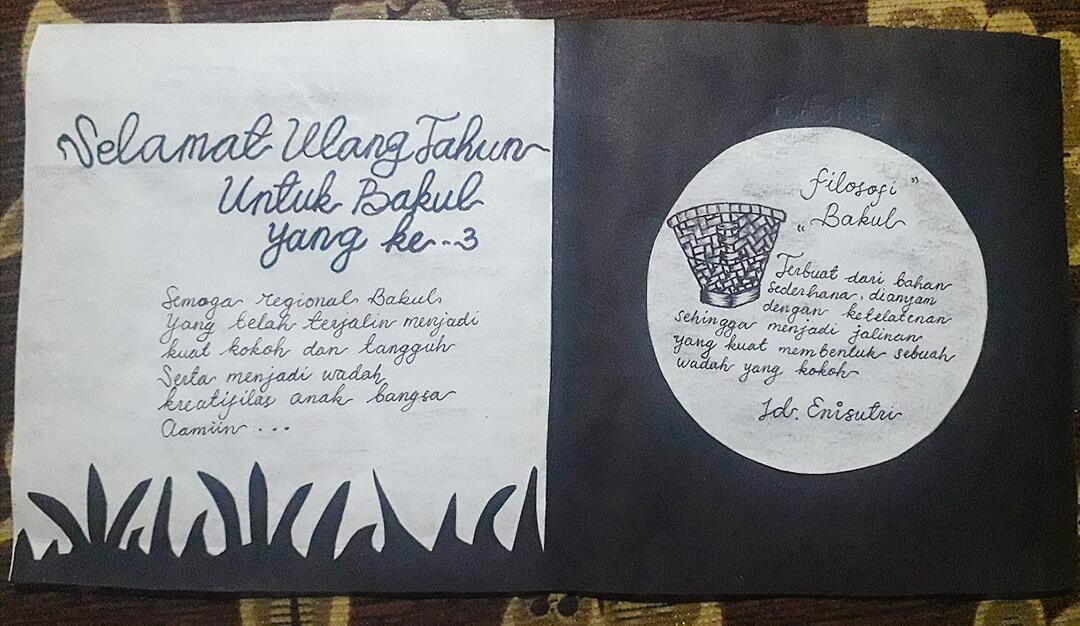 Selamat Ulang Tahun
Untuk Bakul
yang ke..3
Semoga regional Bakul
Yang telah terjalin menjadi
kuat kokoh dan tangguh
Serta menjadi wadah
kreatifilas anak bangsa
Aamiin...
Filosofi"
"Bakul
Terbuat dari bahan
sederhana, dianyam
dengan ketelatenan
sehingga menjadi jalinan
yang kuat membentuk sebuah
wadah yang kokoh
Id. Enisutri